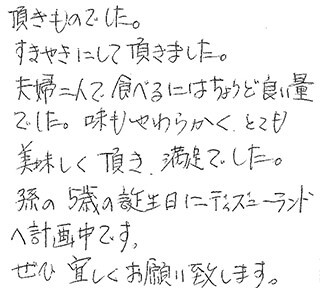 頂きものでした。
すきやきにして頂きました。
夫婦二人で食べるにはちょうど良い量
でした。味もやわらかく、とても
美味しく頂き、満足でした。
孫の5歳の誕生日にディズニーランド
へ計画中です。
ぜひ宜しくお願い致します。